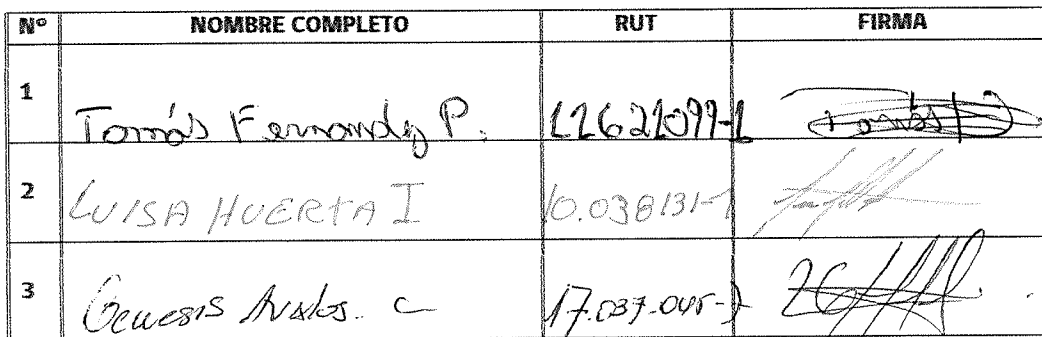 Nº NOMBRE COMPLETO RUT FIRMA
1 Tomás Fernandez P. 12621099-1 Tomás
2 LUISA HUERTA I 10.038131-1
3 Genesis Avalos. C